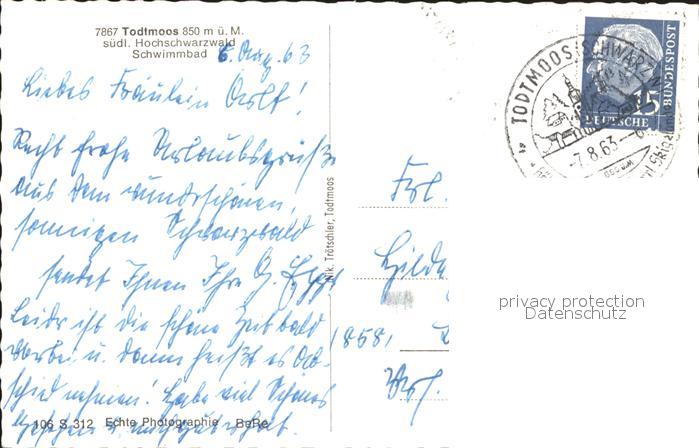 7867 Todtmoos 850 m ü. M.
südl. Hochschwarzwald
Schwimmbad
6. Aug. 63
Liebes Fräulein
Recht frohe Urlaubsgrüße
aus dem wunderschönen,
sonnigen Schwarzwald
sendet Ihnen Ihre G.
Leider ist die schöne Zeit bald
vorbei u. dann heißt es Ab-
schied nehmen! Habe viel Schönes
gesehen u.
106 S 312 Echte Photographie BeRe
Nik. Trötschler, Todtmoos
TODTMOOS (SCHWARZW
-7.8.63
15
DEUTSCHE
BUNDESPOST
Frl.
Hilde
1858,
privacy protection
Datenschutz